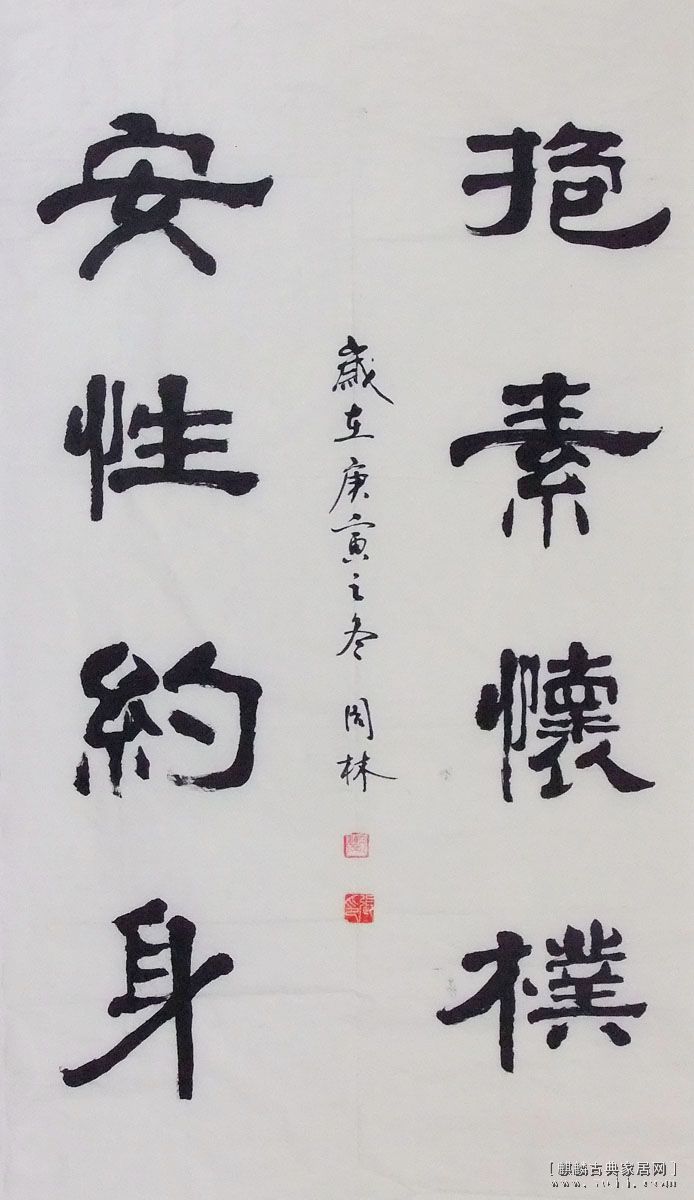 抱素懷樸
安性約身
歲在庚寅之冬 周林
[麒麟古典家居网]